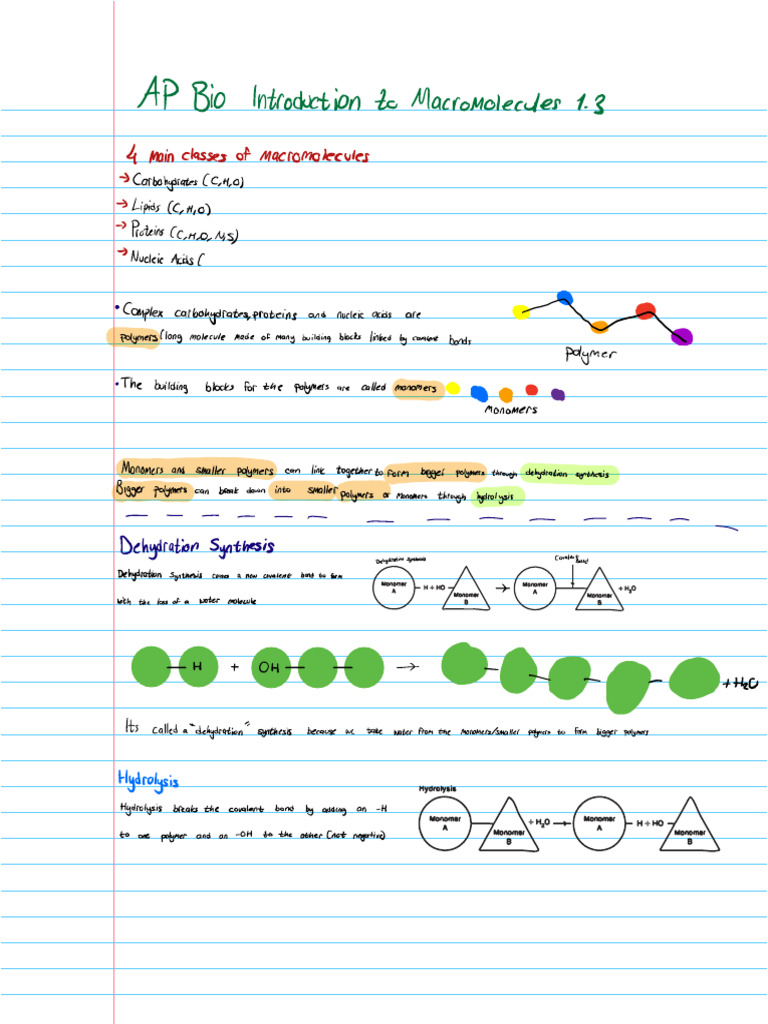 AP Bio Introduction to Macromolecules 1.3
4 main classes of macromolecules
→ Carbohydrates (C,H,O)
→ Lipids (C,H,O)
→ Proteins (C,H,O,N,S)
→ Nucleic Acids (
• Complex carbohydrates, proteins and nucleic acids are
polymers (long molecule made of many building blocks linked by covalent bonds
polymer
• The building blocks for the polymers are called monomers
monomers
Monomers and smaller polymers can link together to form bigger polymers through dehydration synthesis
Bigger polymers can break down into smaller polymers or monomers through hydrolysis
Dehydration Synthesis
Dehydration Synthesis causes a new covalent bond to form
with the loss of a water molecule
Dehydration Synthesis
Covalent bond
Monomer A
H + HO
Monomer B
→
Monomer A
Monomer B
+ H₂O
H + OH → + H₂O
Its called a "dehydration" synthesis because we take water from the monomers/smaller polymers to form bigger polymers
Hydrolysis
Hydrolysis breaks the covalent bond by adding an -H
to one polymer and an -OH to the other (not negative)
Hydrolysis
Monomer A
Monomer B
+ H₂O →
Monomer A
H + HO
Monomer B